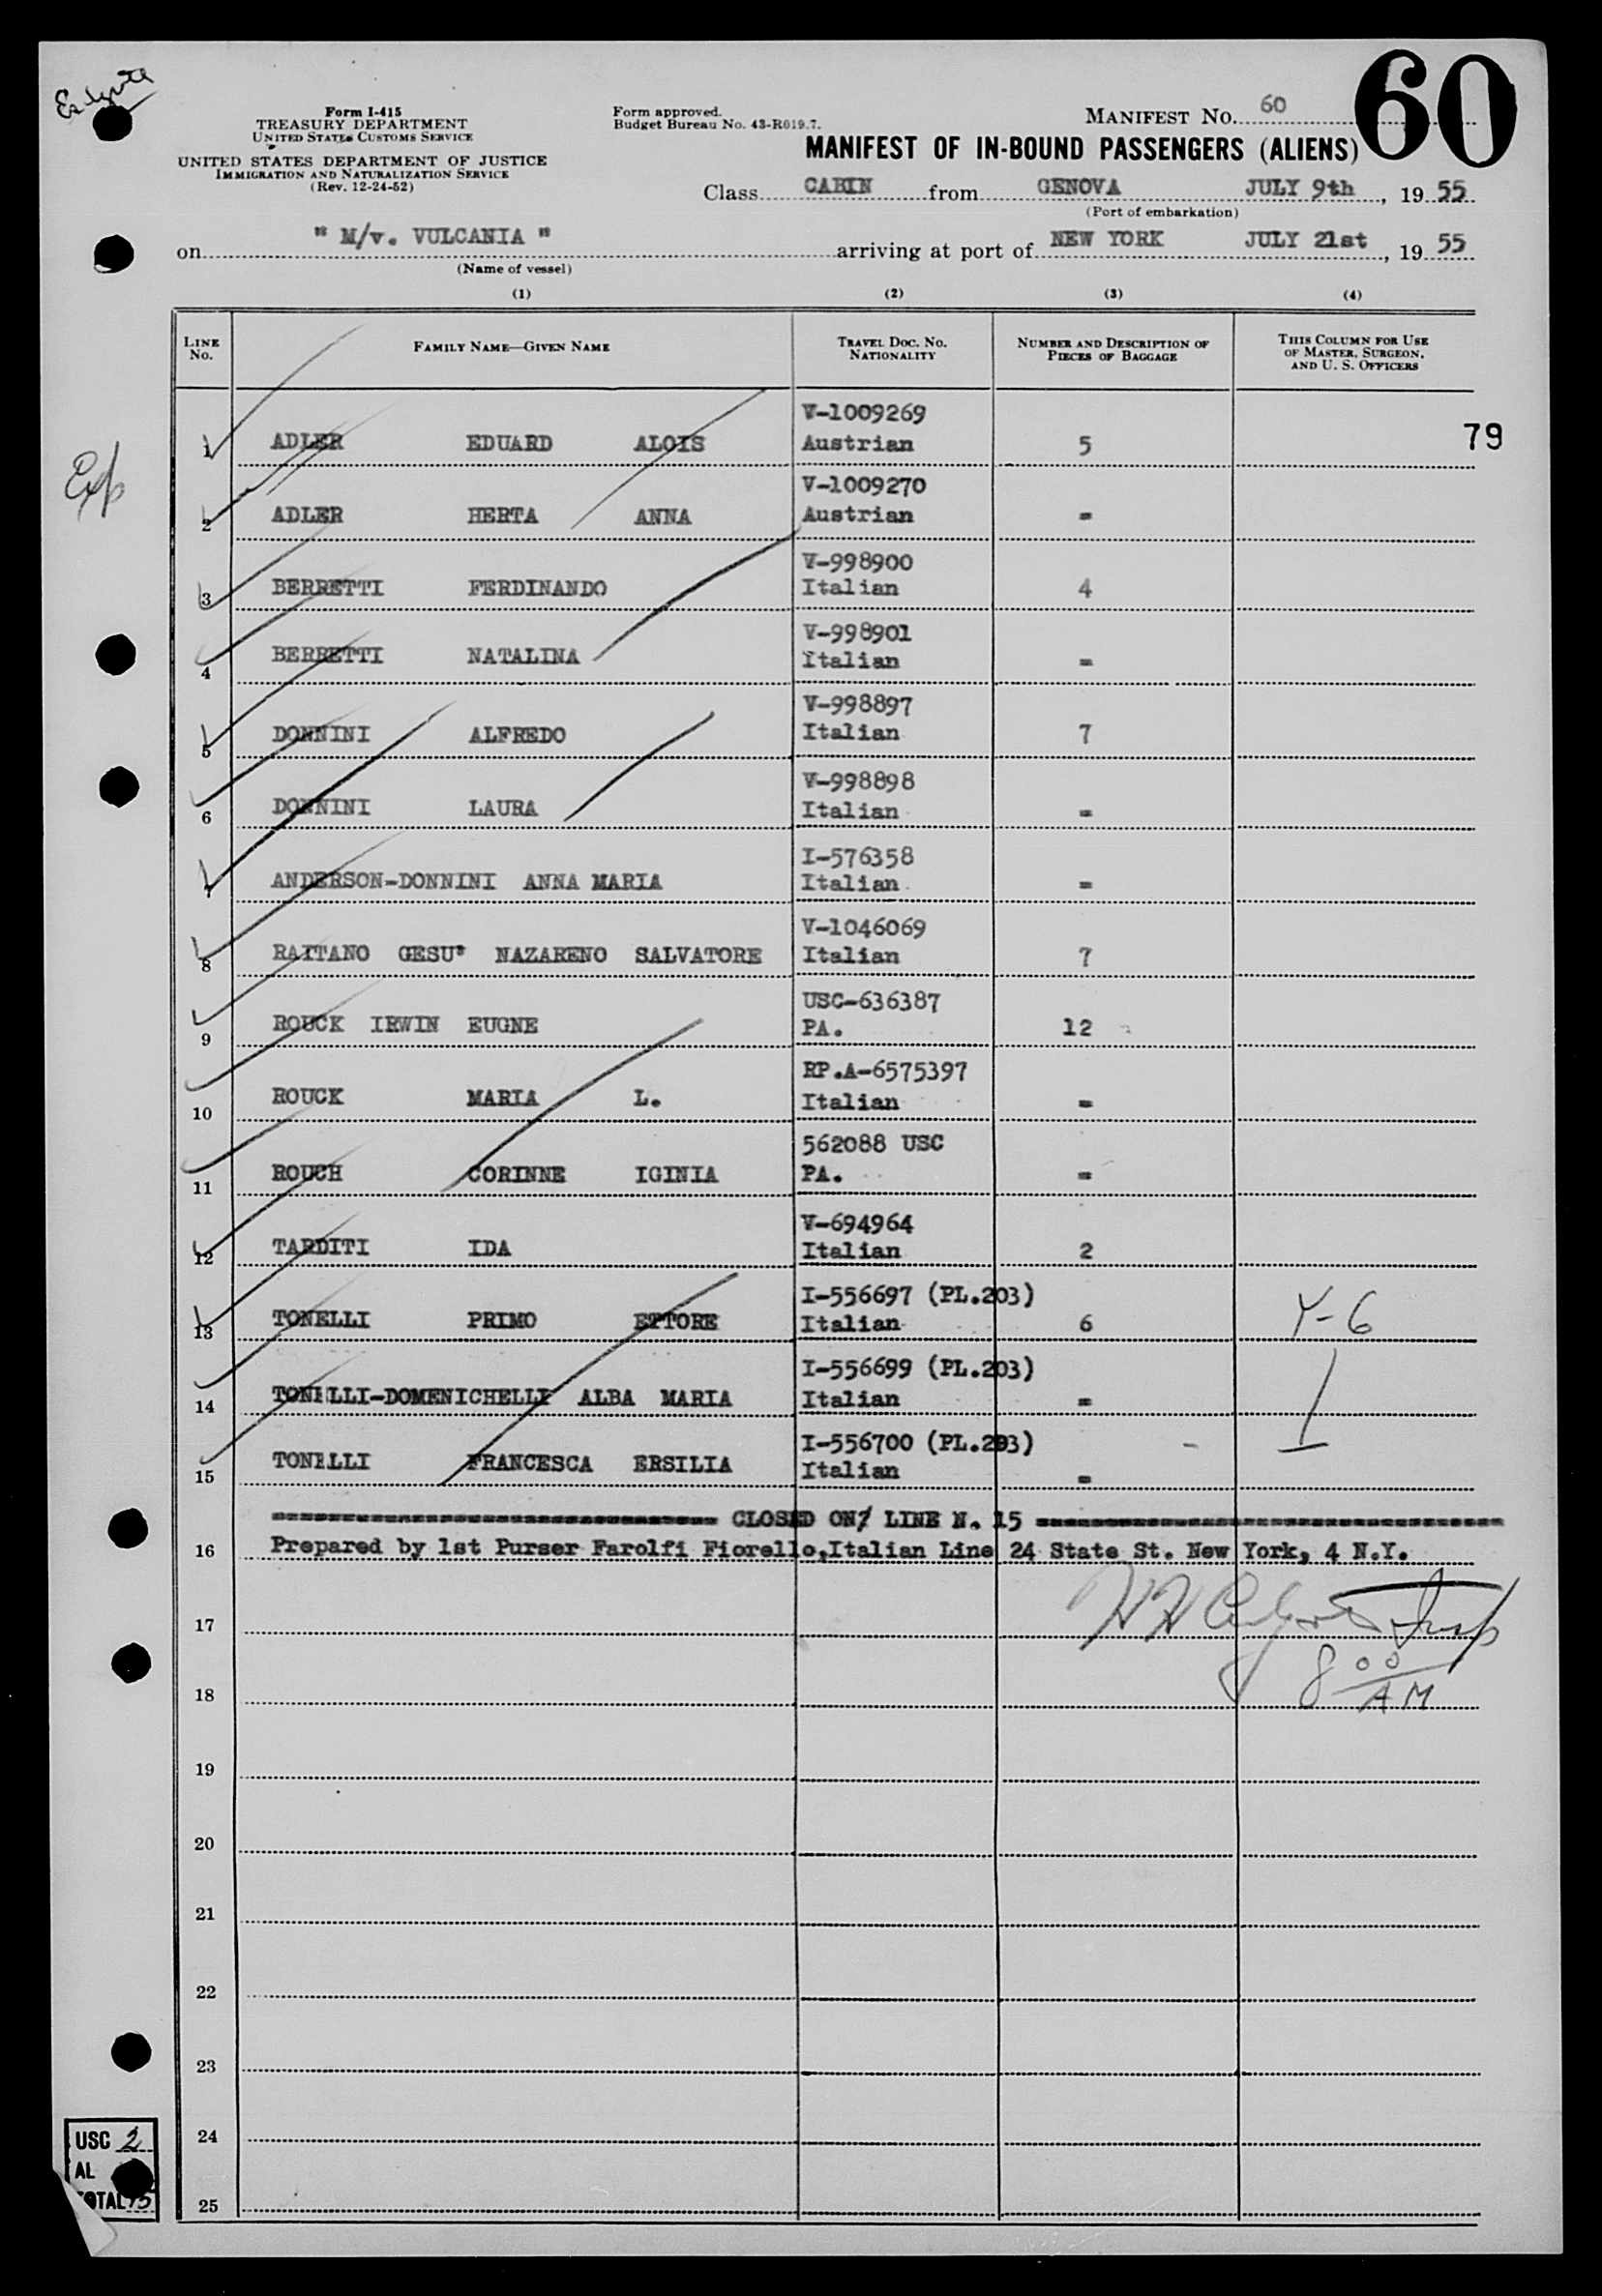 60
Form I-415
TREASURY DEPARTMENT
UNITED STATES CUSTOMS SERVICE
UNITED STATES DEPARTMENT OF JUSTICE
IMMIGRATION AND NATURALIZATION SERVICE
(Rev. 12-24-52)
Form approved.
Budget Bureau No. 43-R019.7.
MANIFEST No. 60
MANIFEST OF IN-BOUND PASSENGERS (ALIENS)
Class CABIN from GENOVA JULY 9th, 19 55
(Port of embarkation)
on " M/v. VULCANIA " arriving at port of NEW YORK JULY 21st, 19 55
(Name of vessel)
(1) (2) (3) (4)
LINE No. FAMILY NAME—GIVEN NAME TRAVEL DOC. No. NATIONALITY NUMBER AND DESCRIPTION OF PIECES OF BAGGAGE THIS COLUMN FOR USE OF MASTER, SURGEON, AND U. S. OFFICERS
79
Exp
V-1009269
1 ADLER EDUARD ALOIS Austrian 5
V-1009270
2 ADLER HERTA ANNA Austrian =
V-998900
3 BERRETTI FERDINANDO Italian 4
V-998901
4 BERRETTI NATALINA Italian =
V-998897
5 DONNINI ALFREDO Italian 7
V-998898
6 DONNINI LAURA Italian =
I-576358
7 ANDERSON-DONNINI ANNA MARIA Italian =
V-1046069
8 RAITANO GESU' NAZARENO SALVATORE Italian 7
USC-636387
9 ROUCK IRWIN EUGNE PA. 12
RP.A-6575397
10 ROUCK MARIA L. Italian =
562088 USC
11 ROUCH CORINNE IGINIA PA. =
V-694964
12 TARDITI IDA Italian 2
I-556697 (PL.203)
13 TONELLI PRIMO ETTORE Italian 6 Y-6
I-556699 (PL.203)
14 TONELLI-DOMENICHELLI ALBA MARIA Italian =
I-556700 (PL.203)
15 TONELLI FRANCESCA ERSILIA Italian =
CLOSED ON LINE N. 15
16 Prepared by 1st Purser Farolfi Fiorello,Italian Line 24 State St. New York, 4 N.Y.
17
8 00 AM
18
19
20
21
22
23
24
25
USC 2
AL
TOTAL 15